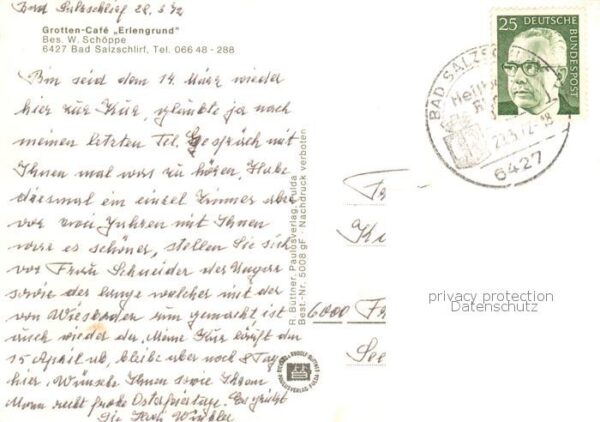 Bad Salzschlief 28.3.72
Grotten-Café „Erlengrund"
Bes. W. Schöppe
6427 Bad Salzschlirf, Tel. 066 48 - 288
Bin seid dem 14. März wieder
hier zur Kur, glaubte ja nach
meinen letzten Tel. Gespräch mit
Ihnen mal was zu hören. Habe
diesmal ein einzel Zimmer aber
vor zwei Jahren mit Ihnen
war es schöner, stellen Sie sich
vor Frau Schneider der Ungar
sowie der lange welcher mit der
von Wiesbaden rum gemacht ist
auch wieder da. Meine Kur läuft am
15 April ab, bleibe aber noch 8 Tage
hier. Wünsche Ihnen sowie Ihrem
Mann recht frohe Osterfeiertage. Es grüßt
Sie
R. Büttner, Paulosverlag, Fulda
Best.-Nr. 5008 gF Nachdruck verboten
25 DEUTSCHE
BUNDESPOST
BAD SALZSC
6427
Fr
6000 Fr
privacy protection
Datenschutz